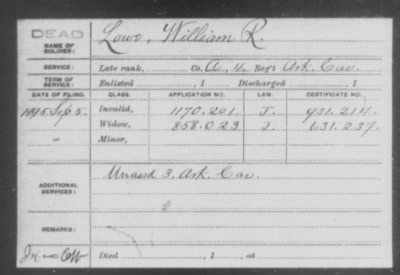 DEAD
NAME OF SOLDIER:
Lowe, William R.
SERVICE:
Late rank, Co. A, 4. Reg't Ark. Cav.
TERM OF SERVICE:
Enlisted , 1 Discharged , 1
DATE OF FILING. CLASS. APPLICATION NO. LAW. CERTIFICATE NO.
1895. Sep 5. Invalid, 1170.201 J. 921.214.
Widow, 858.023 J. 631.237.
Minor,
ADDITIONAL SERVICES:
Unassd 3. Ark. Cav.
REMARKS:
Died , 1 , at